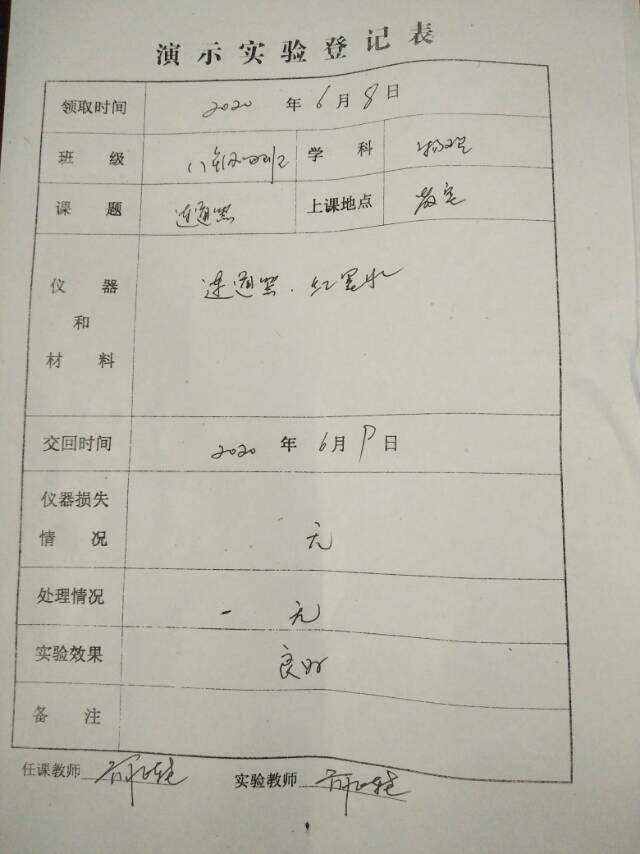 演示实验登记表
领取时间 2020 年 6 月 8 日
班 级 八年 班 学 科 物理
课 题 连通器 上课地点 教室
仪 器 和 材 料 连通器、红墨水
交回时间 2020 年 6 月 9 日
仪器损失情 况 无
处理情况 无
实验效果 良好
备 注
任课教师 实验教师